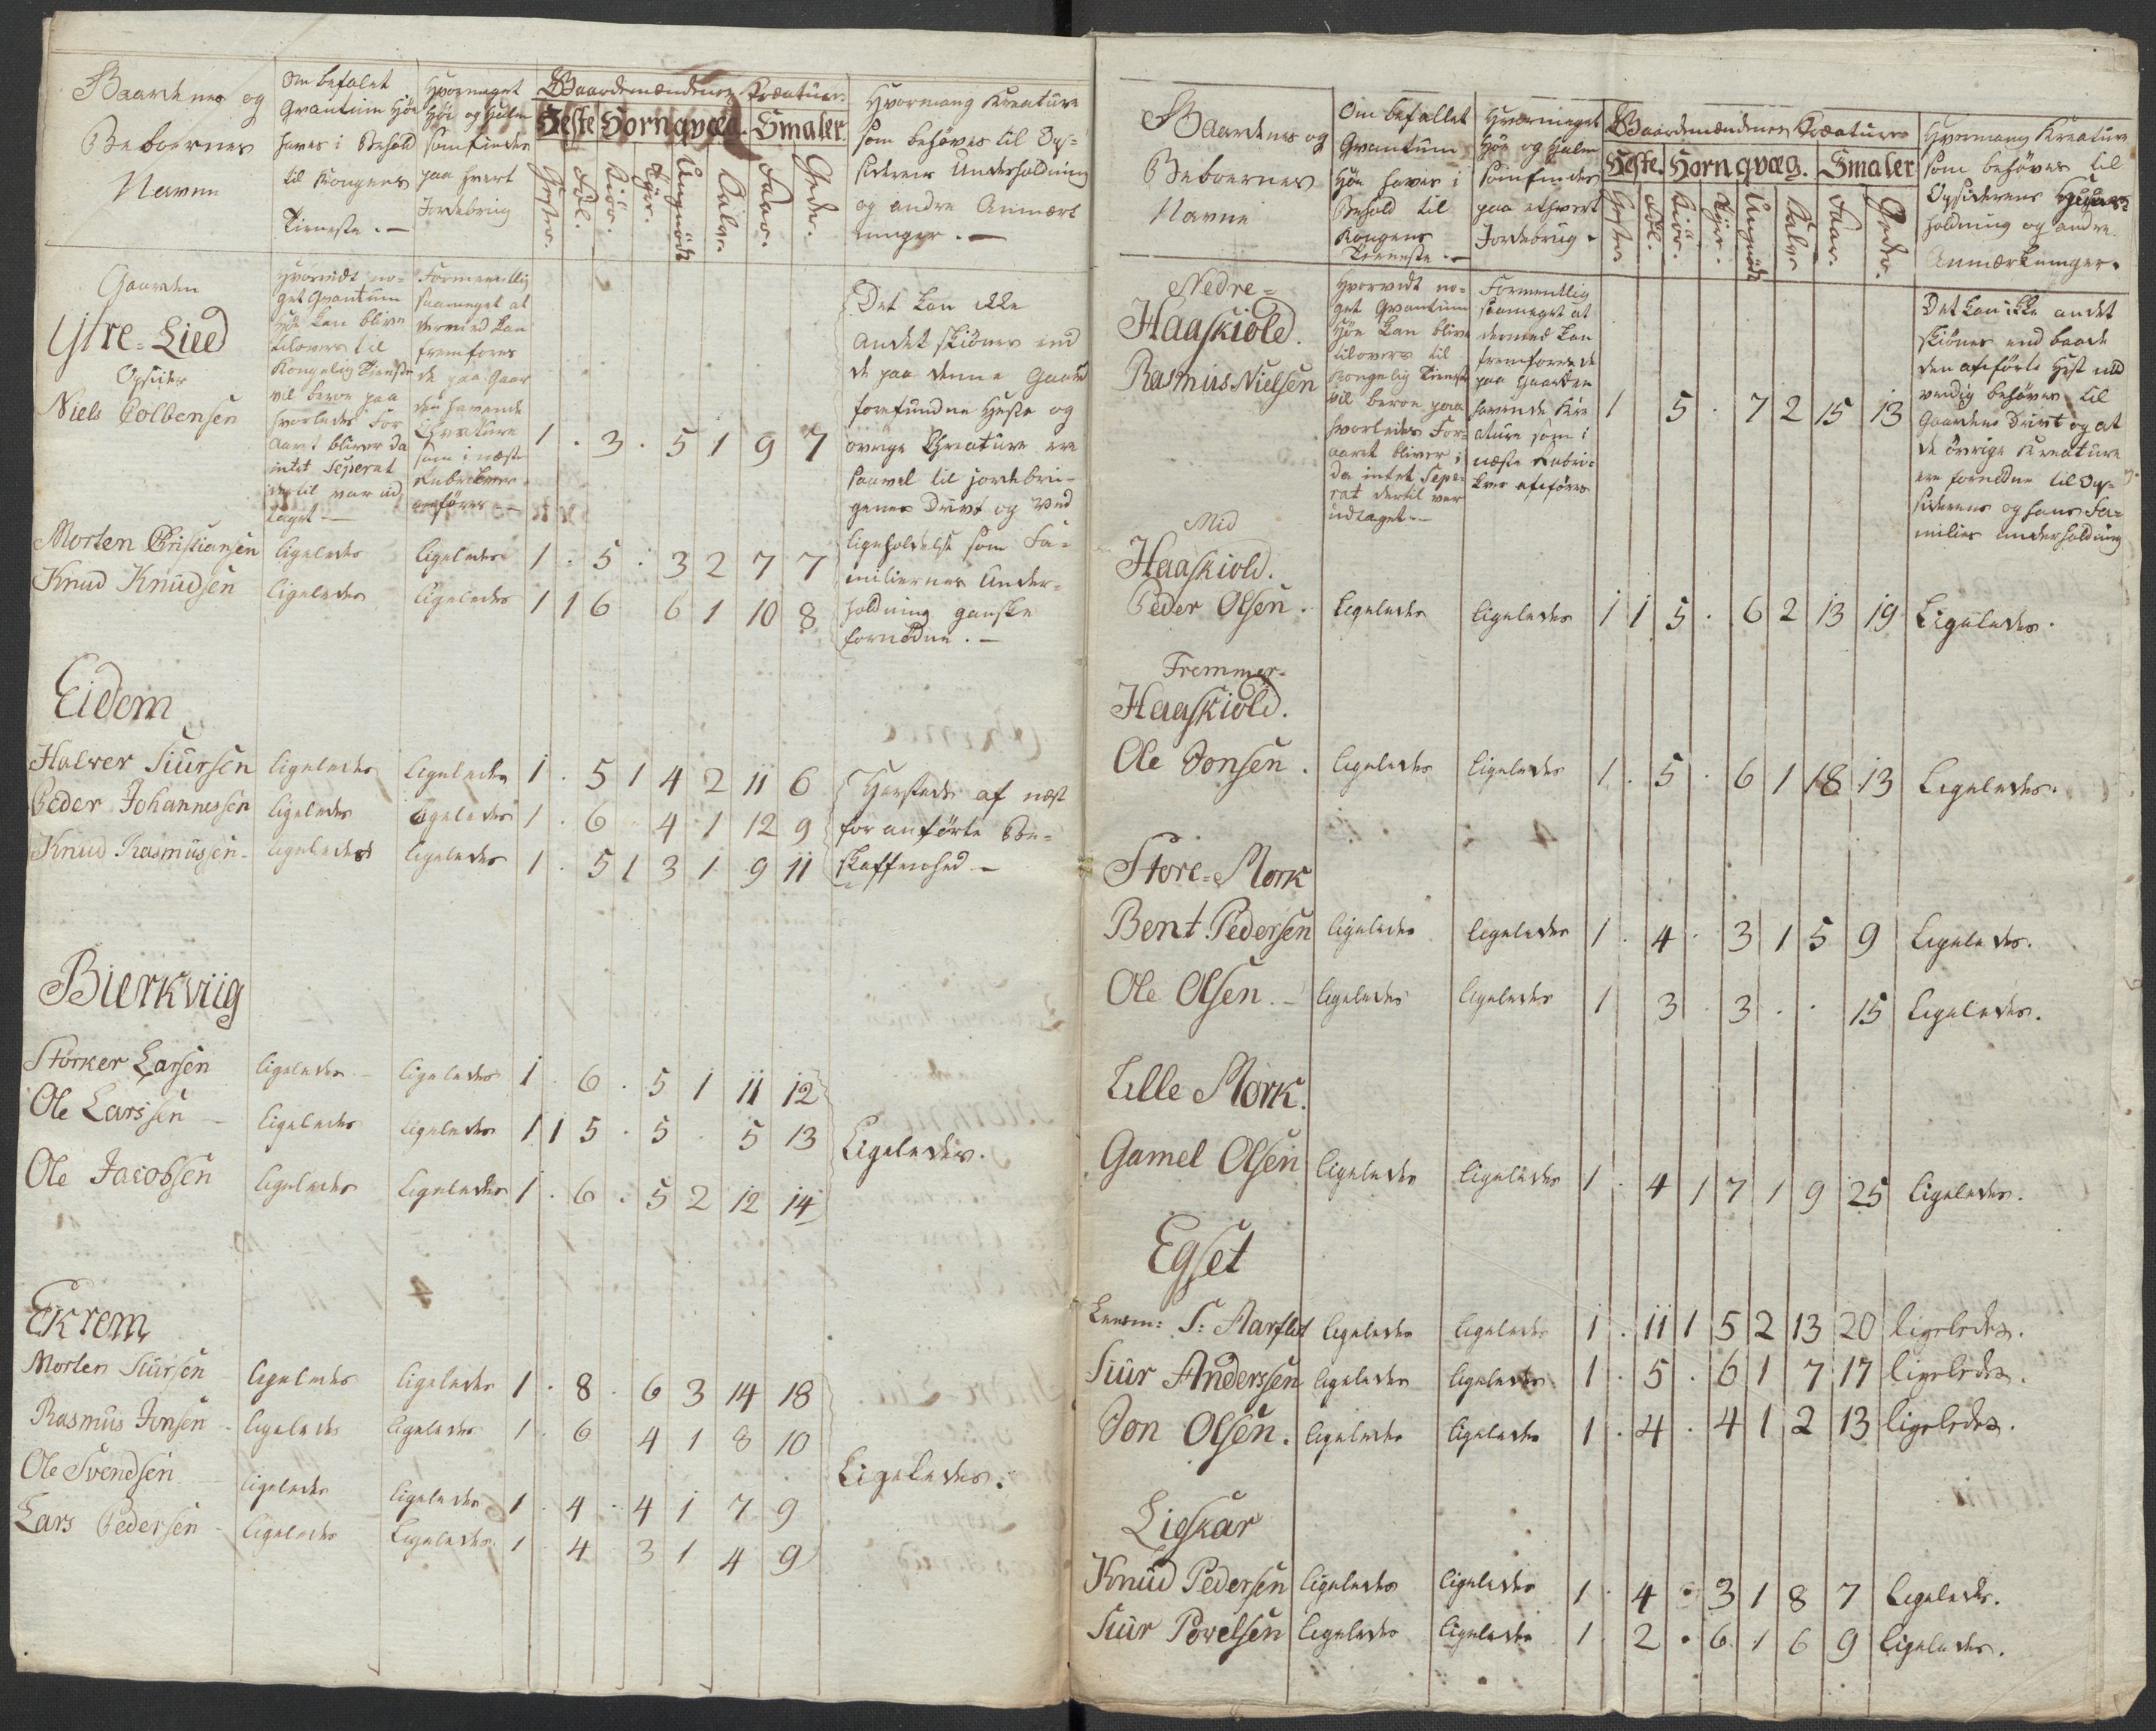 Gaardenes og
Beboernes
Navne
Om befalet
Qvantum Høe
haves i Behold
til Kongens
Tieneste. —
Hvormeget
Høe og Halm
som findes
paa hvert
Jordebrug
Gaardemændenes Kreature.
Heste Hornqvæg. Smaler
Heste.
Føl.
Kiør.
Tyr.
Ungnød
Kalve.
Faar.
Geder.
Hvormang Kreature
som behøves til Op-
sidderens Underholdning
og andre Anmærk
ninger. —
Gaarden
Ytre-Lied
Opsider
Niels Colbensen
Hvorvidt no-
get Qvantum
Høe kan blive
tilovers til
Kongelig Tieneste
vil beroe paa
hvorledes For
aaret bliver da
intet Seperat
der til var ud
taget —
Formentlig
saameget at
dermed kan
fremfores
de paa Gaar
den havende
Creature
som i næste
Rubrikker
anføres —
1 . 3 . 5 1 9 7
Det kan ikke
andet skiønes end
de paa denne Gaard
forefundne Heste og
øvrige Creature ere
saavel til jordebru-
genes Drivt og Ved
ligeholdelse som Fa-
miliernes Under-
holdning ganske
fornødne. —
Morten Christiansen ligeledes ligeledes 1 . 5 . 3 2 7 7
Knud Knudsen ligeledes ligeledes 1 1 6 6 1 10 8
Eidem
Halver Siursen ligeledes ligeledes 1 . 5 1 4 2 11 6
Peder Johannessen ligeledes ligeledes 1 . 6 4 1 12 9
Knud Rasmussen - ligeledes ligeledes 1 . 5 1 3 1 9 11
Ligesteds af næst
for anførte Be-
skaffenhed —
Bierkviig
Storker Larsen ligeledes ligeledes 1 . 6 . 5 1 11 12
Ole Larssen — ligeledes ligeledes 1 1 5 . 5 . 5 13
Ole Jacobsen ligeledes ligeledes 1 . 6 . 5 2 12 14
Ligeledes.
Ekrem
Morten Siursen ligeledes ligeledes 1 . 8 . 6 3 14 18
Rasmus Jonsen - ligeledes ligeledes 1 . 6 4 1 8 10
Ole Svendsen ligeledes ligeledes 1 . 4 . 4 1 7 9
Lars Pedersen - ligeledes ligeledes 1 . 4 . 3 1 4 9
Ligeledes.
Gaardenes og
Beboernes
Navne
Om befallet
Qvantum
Høe haves i
Behold til
Kongens
Tieneste. —
Hvormeget
Høe og Halm
som findes
paa ethvert
Jordebrug -
Gaardemændenes Kreature
Heste. Hornqvæg. Smaler
Heste.
Føl.
Kiør.
Tyr.
Ungnød
Kalve
Faar.
Geder.
Hvormang Kreature
som behøves til
Opsiderens Huus-
holdning og andre
Anmærkninger.
Nedre-
Haaskiold.
Rasmus Nielsen
Hvorvidt no-
get Qvantum
Høe kan blive
tilovers til
Kongelig Tieneste
vil beroe paa
hvorledes For-
aaret bliver i
da intet Sepe-
rat dertil var
udtaget. —
Formentlig
saameget at
dermed kan
fremfores de
paa Gaarden
havende Kre
ature som i
næste Rubri-
ker anføres
1 5 . 7 2 15 13
Det kan ikke andet
skiønes end baade
den anførte Hest nød
vendig behøves til
Gaardens Drivt og at
de øvrige Kreature
ere fornødne til Op-
sidderens og hans Fa-
milies underholdning
Mid
Haaskiold.
Peder Olsen. ligeledes ligeledes 1 1 5 . 6 2 13 19 Ligeledes.
Fremmer-
Haaskiold.
Ole Jonsen. ligeledes ligeledes 1 . 5 . 6 1 18 13 Ligeledes.
Store-Mork
Bent Pedersen ligeledes ligeledes 1 . 4 . 3 1 5 9 Ligeledes.
Ole Olsen. - ligeledes ligeledes 1 3 . 3 . . 15 Ligeledes.
Lille Mork.
Gamel Olsen ligeledes ligeledes 1 . 4 1 7 1 9 25 ligeledes.
Egset
Lensm: S: Aarflot ligeledes ligeledes 1 . 11 1 5 2 13 20 ligeledes.
Siur Anderssen ligeledes ligeledes 1 . 5 . 6 1 7 17 ligeledes.
Jon Olsen. ligeledes ligeledes 1 . 4 . 4 1 2 13 ligeledes.
Lieskar
Knud Pedersen ligeledes ligeledes 1 . 4 . 3 1 8 7 Ligeledes.
Siur Povelsen ligeledes ligeledes 1 . 2 . 6 1 6 9 Ligeledes.